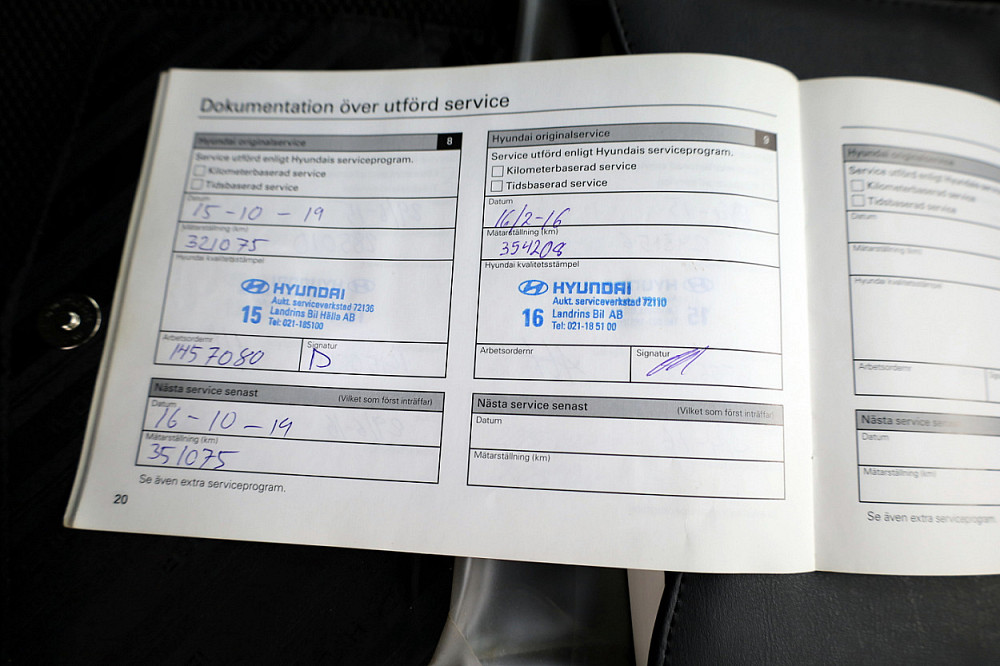 Dokumentation över utförd service
Hyundai originalservice 8
Service utförd enligt Hyundais serviceprogram.
Kilometerbaserad service
Tidsbaserad service
Datum
15-10-19
Mätarställning (km)
321075
Hyundai kvalitetsstämpel
HYUNDAI
Aukt. serviceverkstad 72136
15 Landrins Bil Hälla AB
Tel: 021-185100
Arbetsordernr
1457080
Signatur
Nästa service senast (Vilket som först inträffar)
Datum
16-10-19
Mätarställning (km)
351075
Se även extra serviceprogram.
20
Hyundai originalservice 9
Service utförd enligt Hyundais serviceprogram.
Kilometerbaserad service
Tidsbaserad service
Datum
16/2-16
Mätarställning (km)
354208
Hyundai kvalitetsstämpel
HYUNDAI
Aukt. serviceverkstad 72110
16 Landrins Bil AB
Tel: 021-18 51 00
Arbetsordernr
Signatur
Nästa service senast (Vilket som först inträffar)
Datum
Mätarställning (km)
Hyundai originalservice
Service utförd enligt Hyundais
Kilometerbaserad service
Tidsbaserad service
Datum
Mätarställning (km)
Hyundai kvalitetsstämpel
Arbetsordernr
Nästa service senast
Datum
Mätarställning (km)
Se även extra serviceprogram.